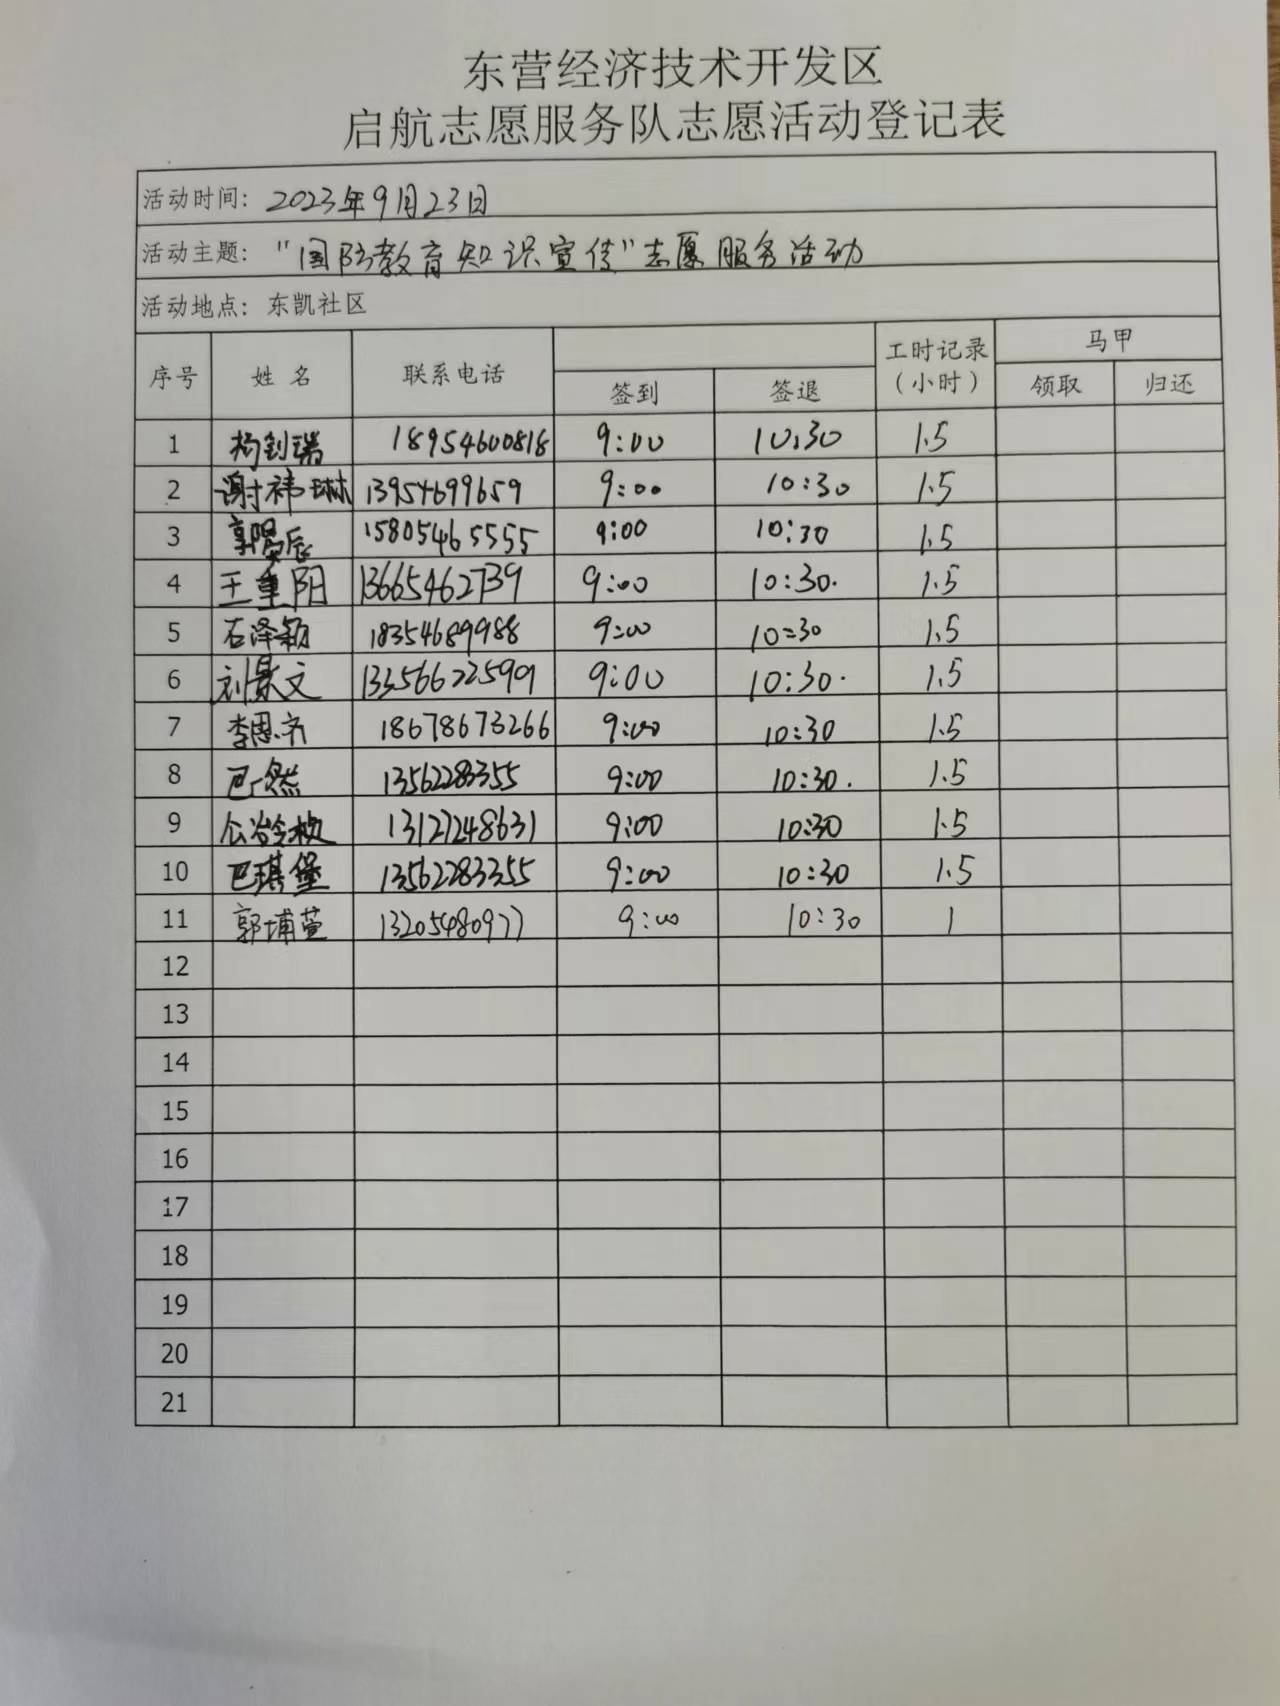 东营经济技术开发区
启航志愿服务队志愿活动登记表
活动时间: 2023年9月23日
活动主题: "国防教育知识宣传"志愿服务活动
活动地点: 东凯社区
序号 姓名 联系电话 签到 签退 工时记录(小时) 马甲 领取 归还
1 杨钊瑞 18954600818 9:00 10:30 1.5
2 谢祎琳 13954699659 9:00 10:30 1.5
3 15805465555 9:00 10:30 1.5
4 王重阳 13665462739 9:00 10:30. 1.5
5 石泽颖 18354689988 9:00 10:30 1.5
6 刘景文 9:00 10:30. 1.5
7 18678673266 9:00 10:30 1.5
8 巴一然 13562283355 9:00 10:30. 1.5
9 13127248631 9:00 10:30 1.5
10 巴琪堡 13562283355 9:00 10:30 1.5
11 郭埔萱 13205480977 9:00 10:30 1
12
13
14
15
16
17
18
19
20
21